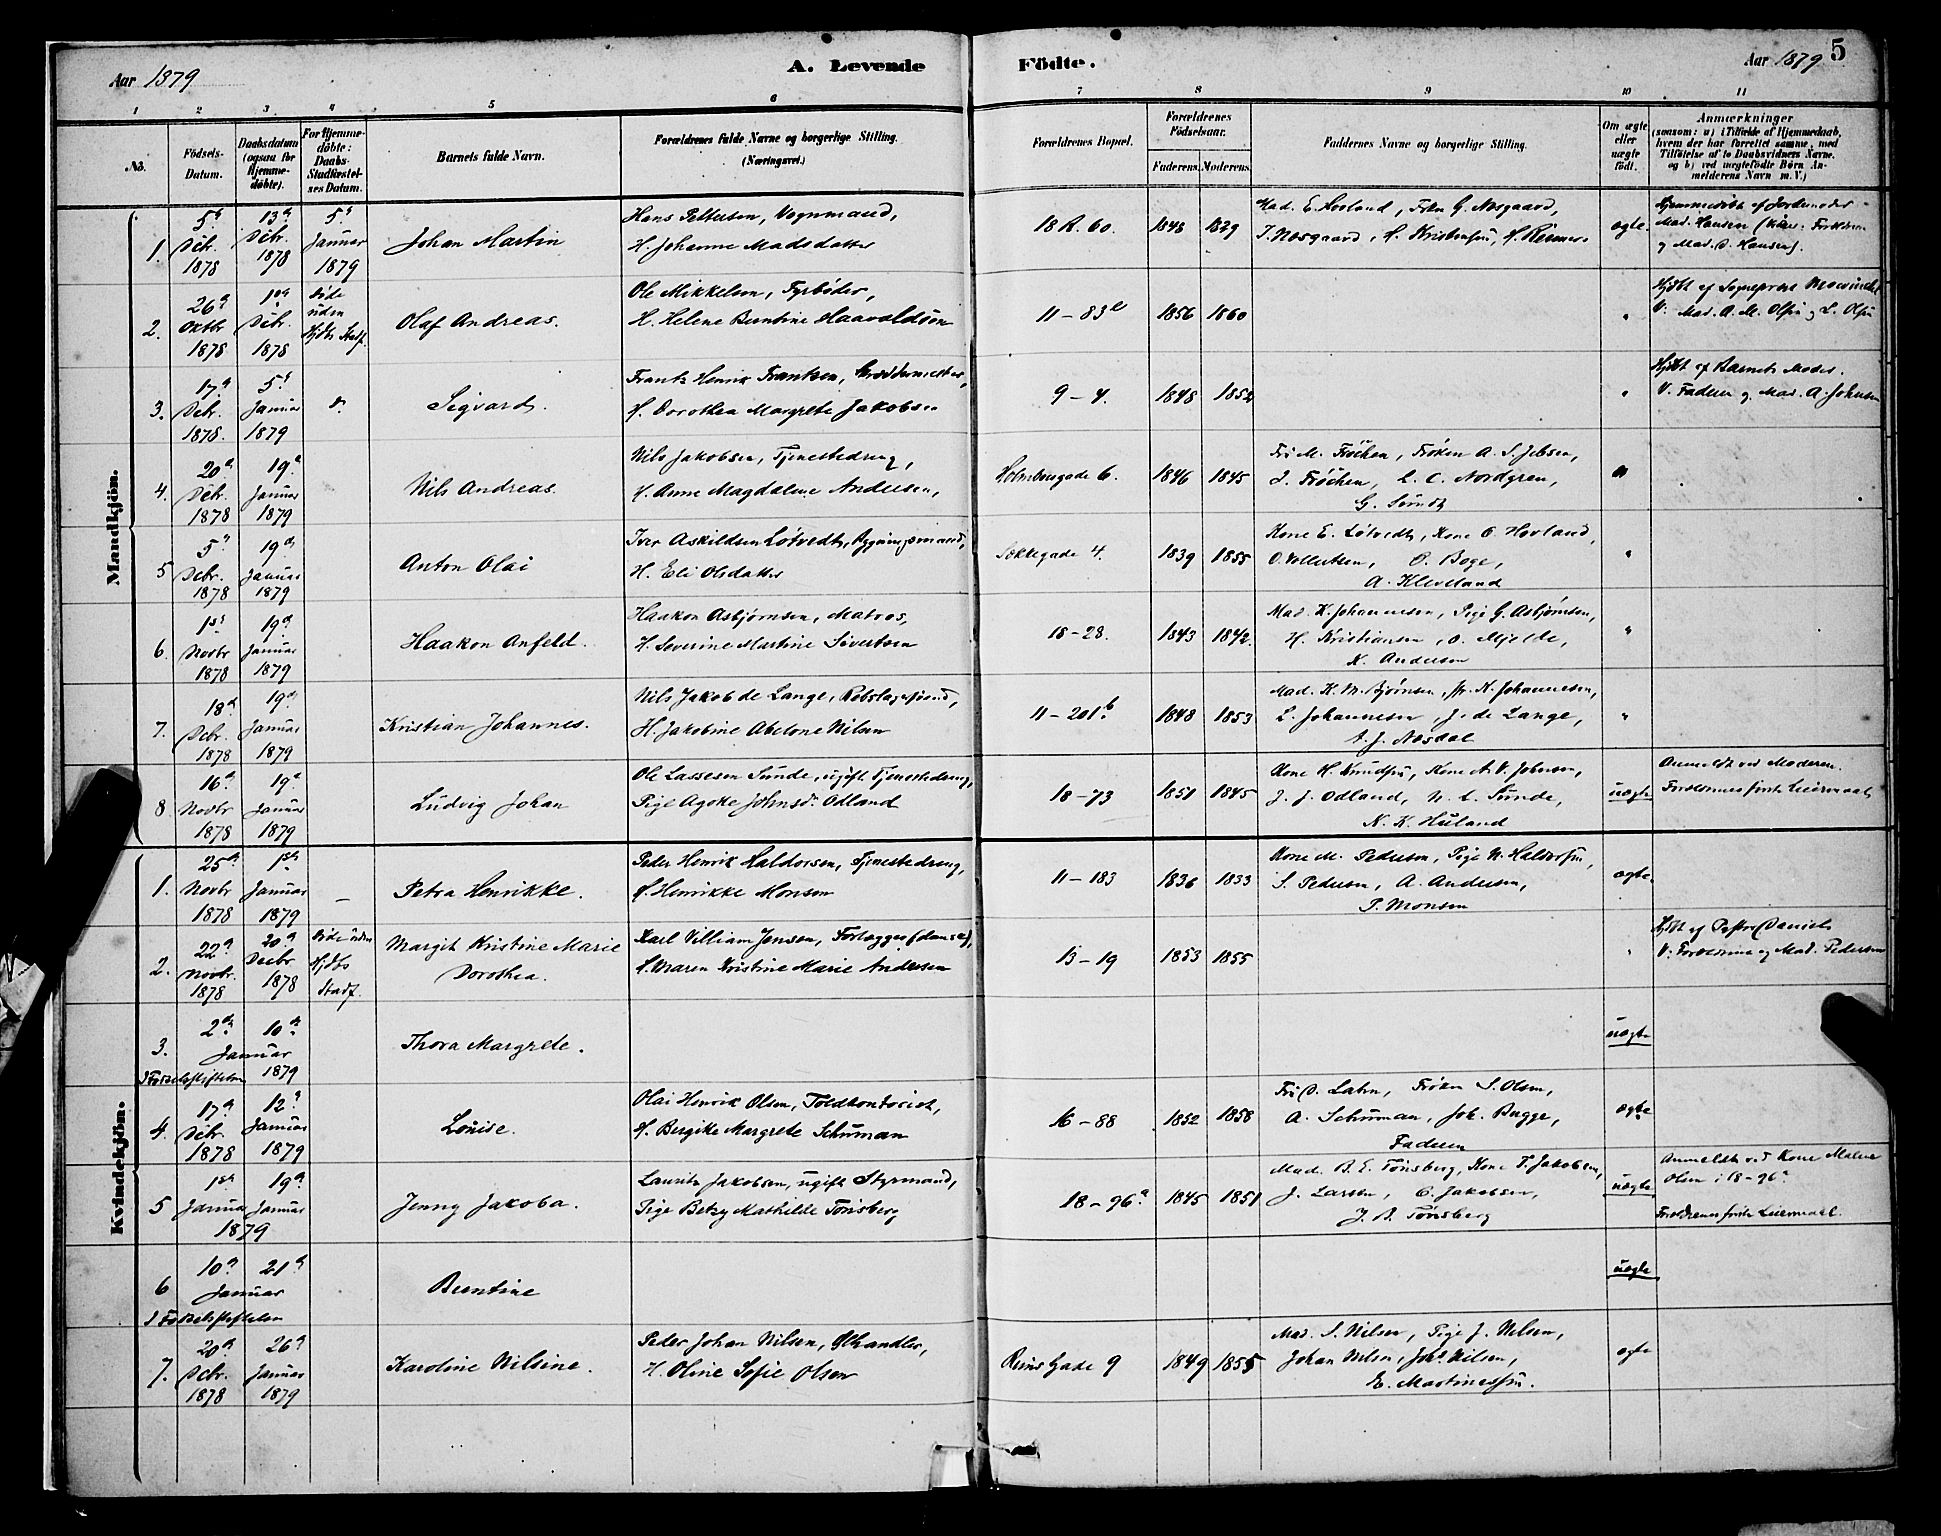 Aar 1879
A. Levende
Födte.
Aar 1879
5
1 2 3 4 5 6 7 8 9 10 11
No.
Födsels-
Datum.
Daabsdatum
(ogsaa for
Hjemme-
döbte).
For Hjemme-
döbte:
Daabs-
Stadfæstel-
ses Datum.
Barnets fulde Navn.
Forældrenes fulde Navne og borgerlige Stilling.
(Næringsvei.)
Forældrenes Bopæl.
Forældrenes
Födselsaar.
Faderens. Moderens.
Faddernes Navne og borgerlige Stilling.
Om ægte
eller
uægte
födt.
Anmærkninger
(saasom: a) i Tilfælde af Hjemmedaab,
hvem der har forrettet samme, med
Tilföielse af to Daabsvidners Navne.
og b) ved uægtefödte Börn An-
melderens Navn m. V.)
Mandkjön.
1. 5te Debr. 1878
13de Debr. 1878
5te Januar 1879
Johan Martin
Hans Pettersen, Vognmand,
H. Johanne Madsdatter
18 R. 60.
1848 1839
Mad. E. Hovland, Frkn G. Næsgaard,
J. Næsgaard, H. Kristensen,
ægte.
Hjemmedöbt af Jordemoder
Mad. Hansen
og Mad. Hansen).
2. 26de Oktbr 1878
1ste Debr. 1878
Döde uden Hjdbs Stadf.
Olaf Andreas.
Ole Mikkelsen, Fyrböder,
H. Helene Berntine Haavaldsen
11 - 83b
1856 1860
"
Hjdbt af Sognepræst
V. Mad. A. M. Olsen og L. Olsen
3. 17de Debr. 1878.
5te Januar 1879
Do
Sigvard.
Frantz Henrik Frantzen,
H. Dorothea Margrete Jakobsen
9 - 4.
1848 1852
"
Hjdbt af Barnets Moder.
V. Faderen og Mad. A. Johnsen
4. 20de Debr. 1878
19de Januar 1879
Nils Andreas.
Nils Jakobsen, Tjenestedreng,
H. Anne Magdalene Andersen,
Holmbergade 6.
1846 1845
Fru M. Fröchen, Fröken A. S. Jebsen,
J. Fröchen, L. C. Nordgren,
G. Sundt
"
5 5te Debr. 1878
19de Januar 1879
Anton Olai
Iver Askildsen Lötvedt, Bygningsmand,
H. Eli Olsdatter
Sekkegade 4.
1839 1855
Kone E. Lötvedt, Kone O. Hovland,
O. Vollertsen, O. Boge,
A. Kleveland
"
6. 1ste Novbr 1878
19de Januar 1879
Haakon Anfeld.
Haakon Asbjørnsen, Matros,
H. Severine Martine Sivertsen
18 - 28.
1843 1842.
Mad. K. Johannesen, Pige G. Asbjørnsen,
H. Kristiansen, O. Mjelde,
K. Andersen
"
7. 18de Debr. 1878
19de Januar 1879
Kristian Johannes.
Nils Jakob de Lange, Rebslagersvend,
H. Jakobine Abelone Nilsen
11 - 201b.
1848 1853
Mad. K. M. Bjørnsen, Jfr. K. Johannesen,
L. Johannesen, J. de Lange,
A. J. Næsdal
"
8 16de Novbr 1878
19de Januar 1879
Ludvig Johan
Ole Lassesen Sunde, ugift Tjenestedreng,
Pige Agote Johnsdr. Odland
18 - 73
1851 1845
Kone H. Knudsen, Kone A. V. Johnsen,
J. J. Odland, N. L. Sunde,
N. K. Huland
uægte
Anmeldt ved Moderen.
Forældrenes förste Leiermaal
Kvindekjön.
1. 25de Novbr 1878
1ste Januar 1879
—
Petra Henrikke.
Peder Henrik Haldorsen, Tjenestedreng,
H. Henrikke Monsen
11 - 183
1836 1833
Kone M. Pedersen, Pige N. Haldorsen,
S. Pedersen, A. Andersen,
P. Monsen
ægte.
2. 22de Novbr. 1878
20de Decbr 1878
Döde uden Hjdbs Stadf.
Margit Kristine Marie
Dorothea.
Karl Villiam Jensen, Forlægger (dansk),
H. Maren Kristine Marie Andersen
13 - 19
1853 1855
"
Hjdbt af Pastor Daniels
V: Forældrene og Mad. Pedersen
3. 2den 10de Januar 1879
I Födselsstiftelsen
Thora Margrete.
uægte
4. 17de Debr. 1878
12te Januar 1879
Louise.
Olai Henrik Olsen, Toldkontorist,
H. Bergitte Margrete Schuman
16 - 88
1852 1858
Fru D. Lahn, Fröken S. Olsen,
A. Schuman, Joh. Bugge,
Faderen
ægte
5 1ste Januar 19de Januar
1879
Jenny Jakoba.
Laurits Jakobsen, ugift Styrmand,
Pige Betzy Mathilde Tönsberg
18 - 96a
1845 1851
Mad. B. E. Tönsberg, Kone T. Jakobsen,
J. Larsen, C. Jakobsen,
J. B. Tönsberg
uægte
Anmeldt ved Kone Malene
Olsen i 18-96a
Forældrenes förste Leiermaal.
6 10de 21de Januar
I Födselsstiftelsen
Berntine
uægte
7. 20de Debr. 1878
26de Januar 1879
Karoline Nilsine.
Peder Johan Nilsen, Ølhandler,
H. Oline Sofie Olsen
Gade 9
1849 1855
Mad. S. Nilsen, Pige J. Nilsen,
Johan Nilsen, Johs Nilsen,
E. Martinessen.
ægte